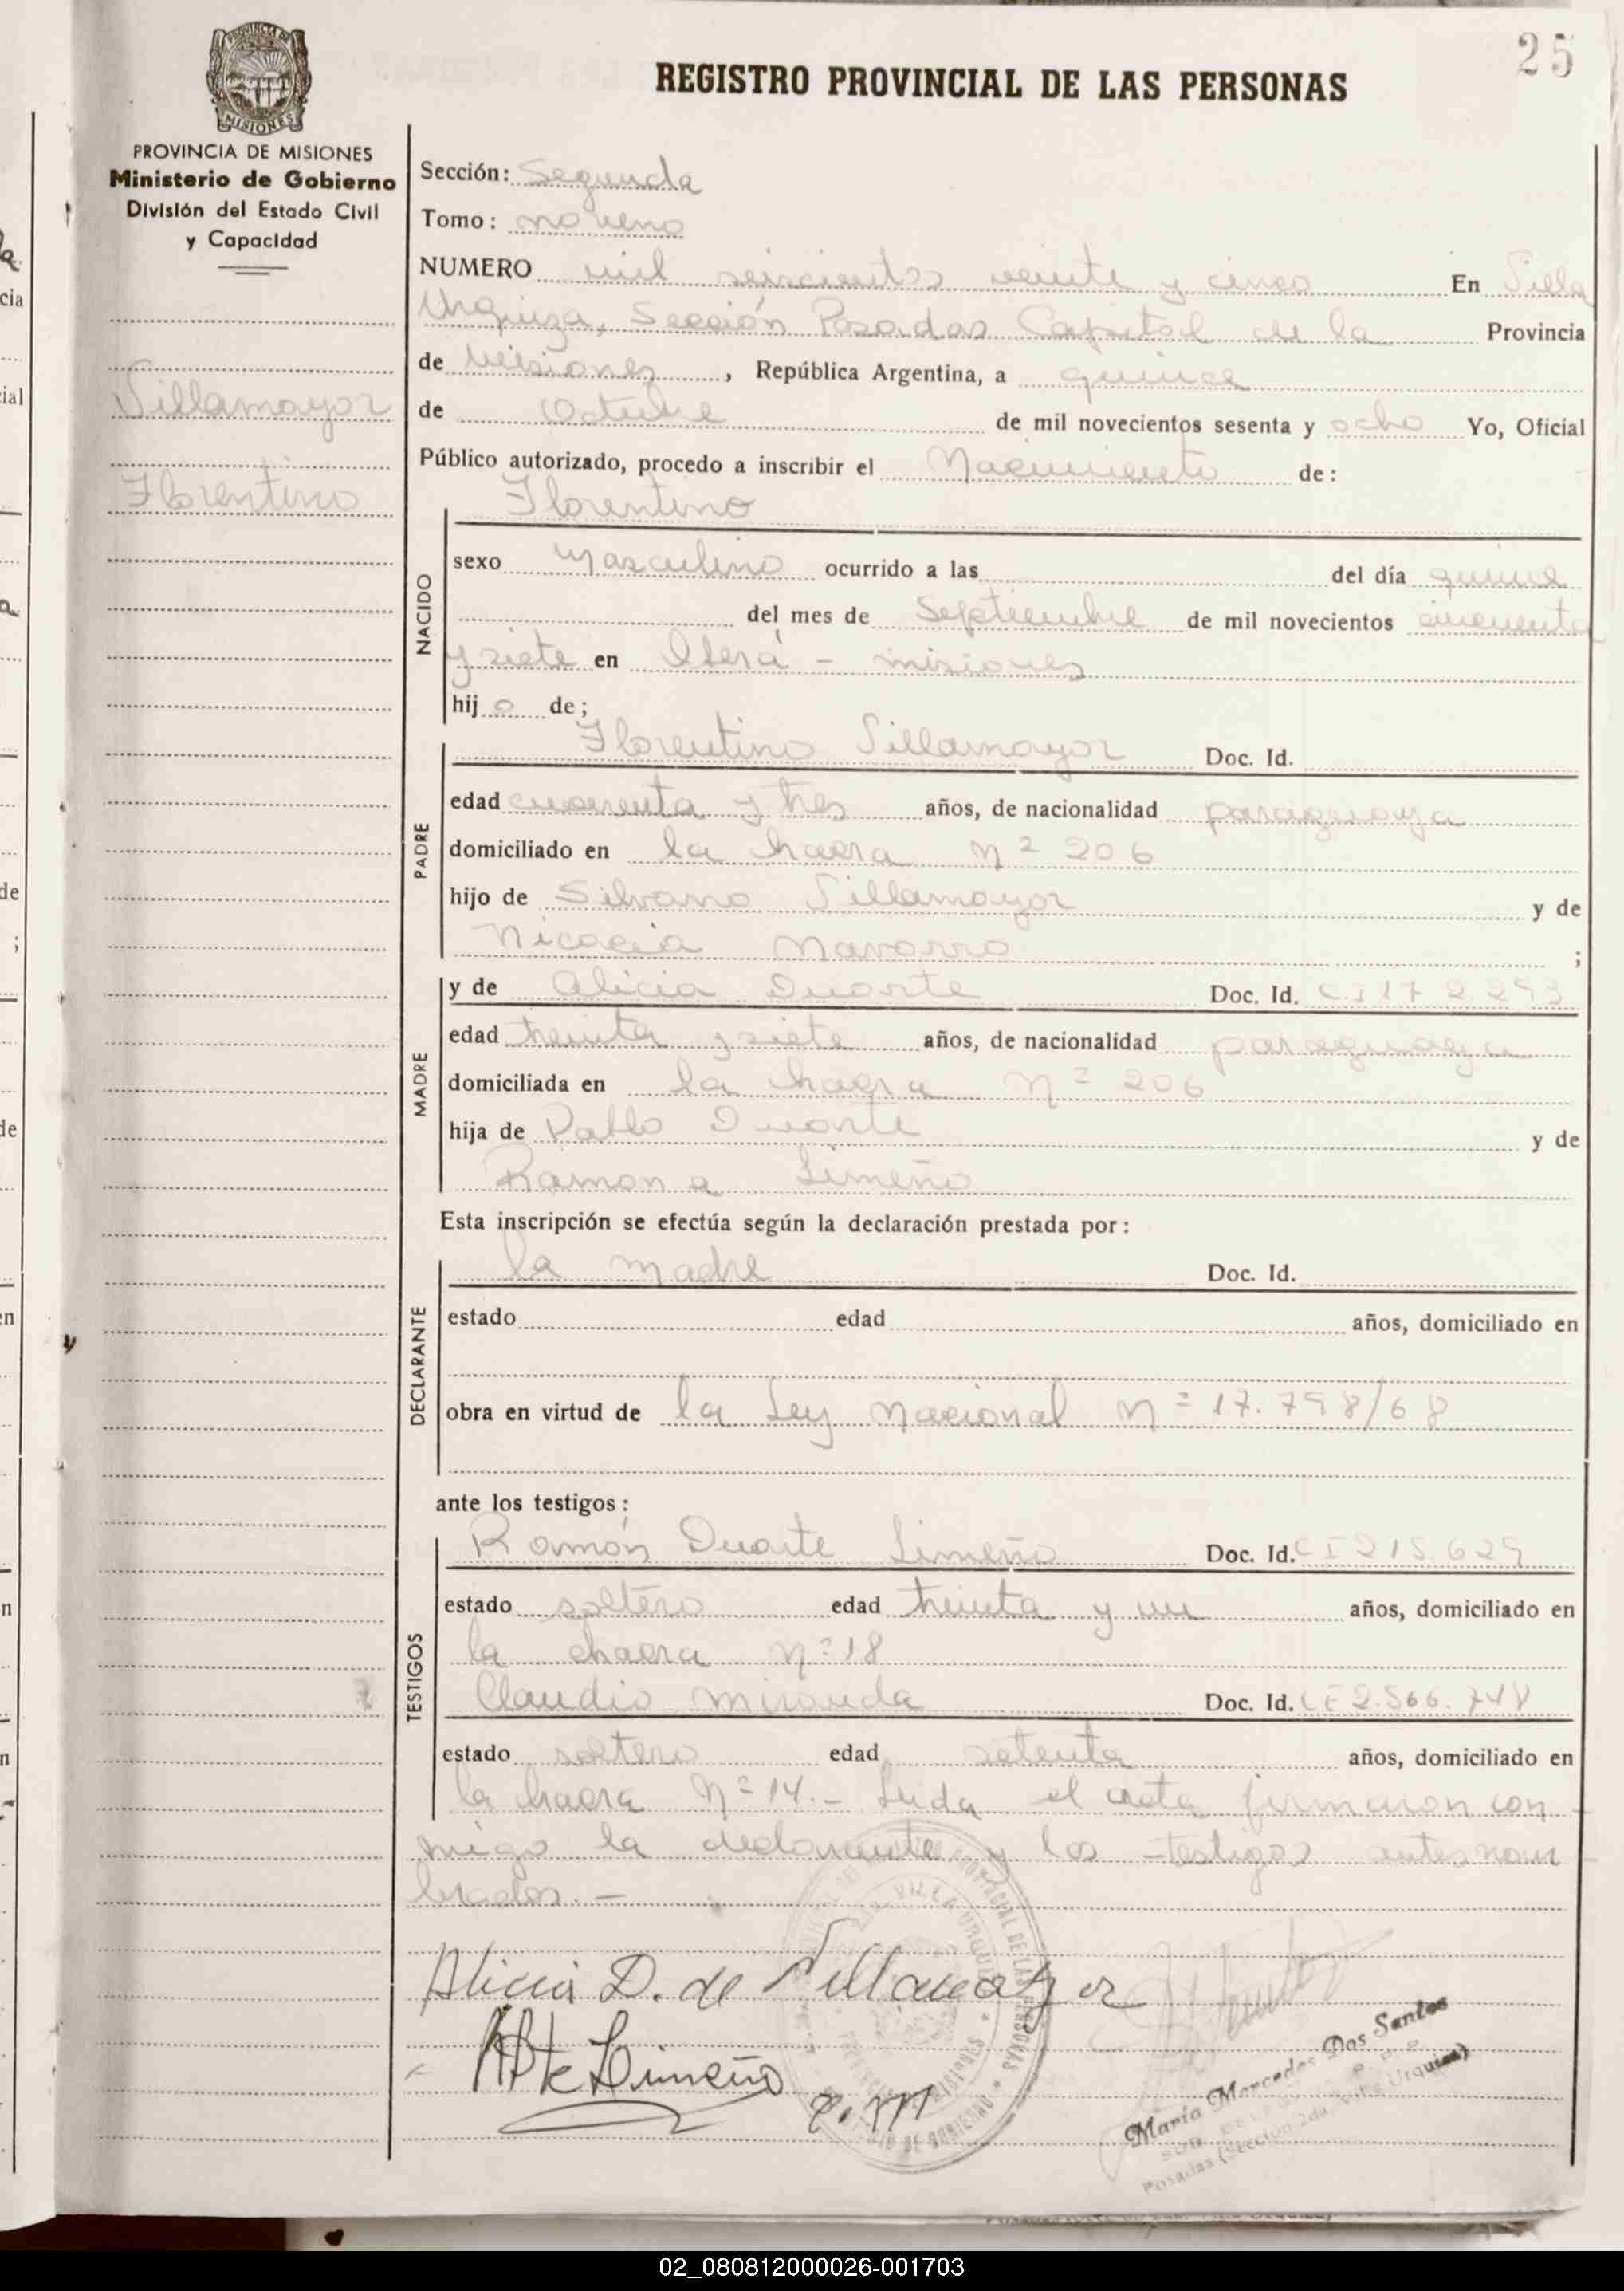 25
REGISTRO PROVINCIAL DE LAS PERSONAS
PROVINCIA DE MISIONES
MISIONES
PROVINCIA DE MISIONES
Ministerio de Gobierno
División del Estado Civil
y Capacidad
Villamayor
Florentino
Sección: Segunda
Tomo: noveno
NUMERO mil seiscientos veinte y cinco En Villa
Urquiza, Sección Posadas Capital de la Provincia
de Misiones, República Argentina, a quince
de Octubre de mil novecientos sesenta y ocho Yo, Oficial
Público autorizado, procedo a inscribir el Nacimiento de:
Florentino
NACIDO
sexo Masculino ocurrido a las del día quince
del mes de Septiembre de mil novecientos cincuenta
y siete en Oberá - misiones
hijo de;
PADRE
Florentino Villamayor Doc. Id.
edad cuarenta y tres años, de nacionalidad paraguaya
domiciliado en la hacra Nº 206
hijo de Silvano Villamayor y de
Nicacia Navarro ;
MADRE
y de Alicia Duarte Doc. Id. C.I 172.293
edad treinta y siete años, de nacionalidad paraguaya
domiciliada en la hacra Nº 206
hija de Pablo Duarte y de
Ramona Limeño
Esta inscripción se efectúa según la declaración prestada por:
DECLARANTE
la madre Doc. Id.
estado edad años, domiciliado en
obra en virtud de la Ley Nacional Nº 17.798/68
ante los testigos:
TESTIGOS
Ramón Duarte Limeño Doc. Id. CI 215.629
estado soltero edad treinta y un años, domiciliado en
la chacra Nº 18
Claudio miranda Doc. Id. LE 2.566.748
estado soltero edad setenta años, domiciliado en
la chacra Nº 14.- Leida el acta firmaron con-
migo la declarante y los testigos antes nom-
brados.-
Alicia D. de Villamayor
Dte Limeño
C. M
María Mercedes Dos Santos
Posadas (Sección 2da. Villa Urquiza)
02_080812000026-001703